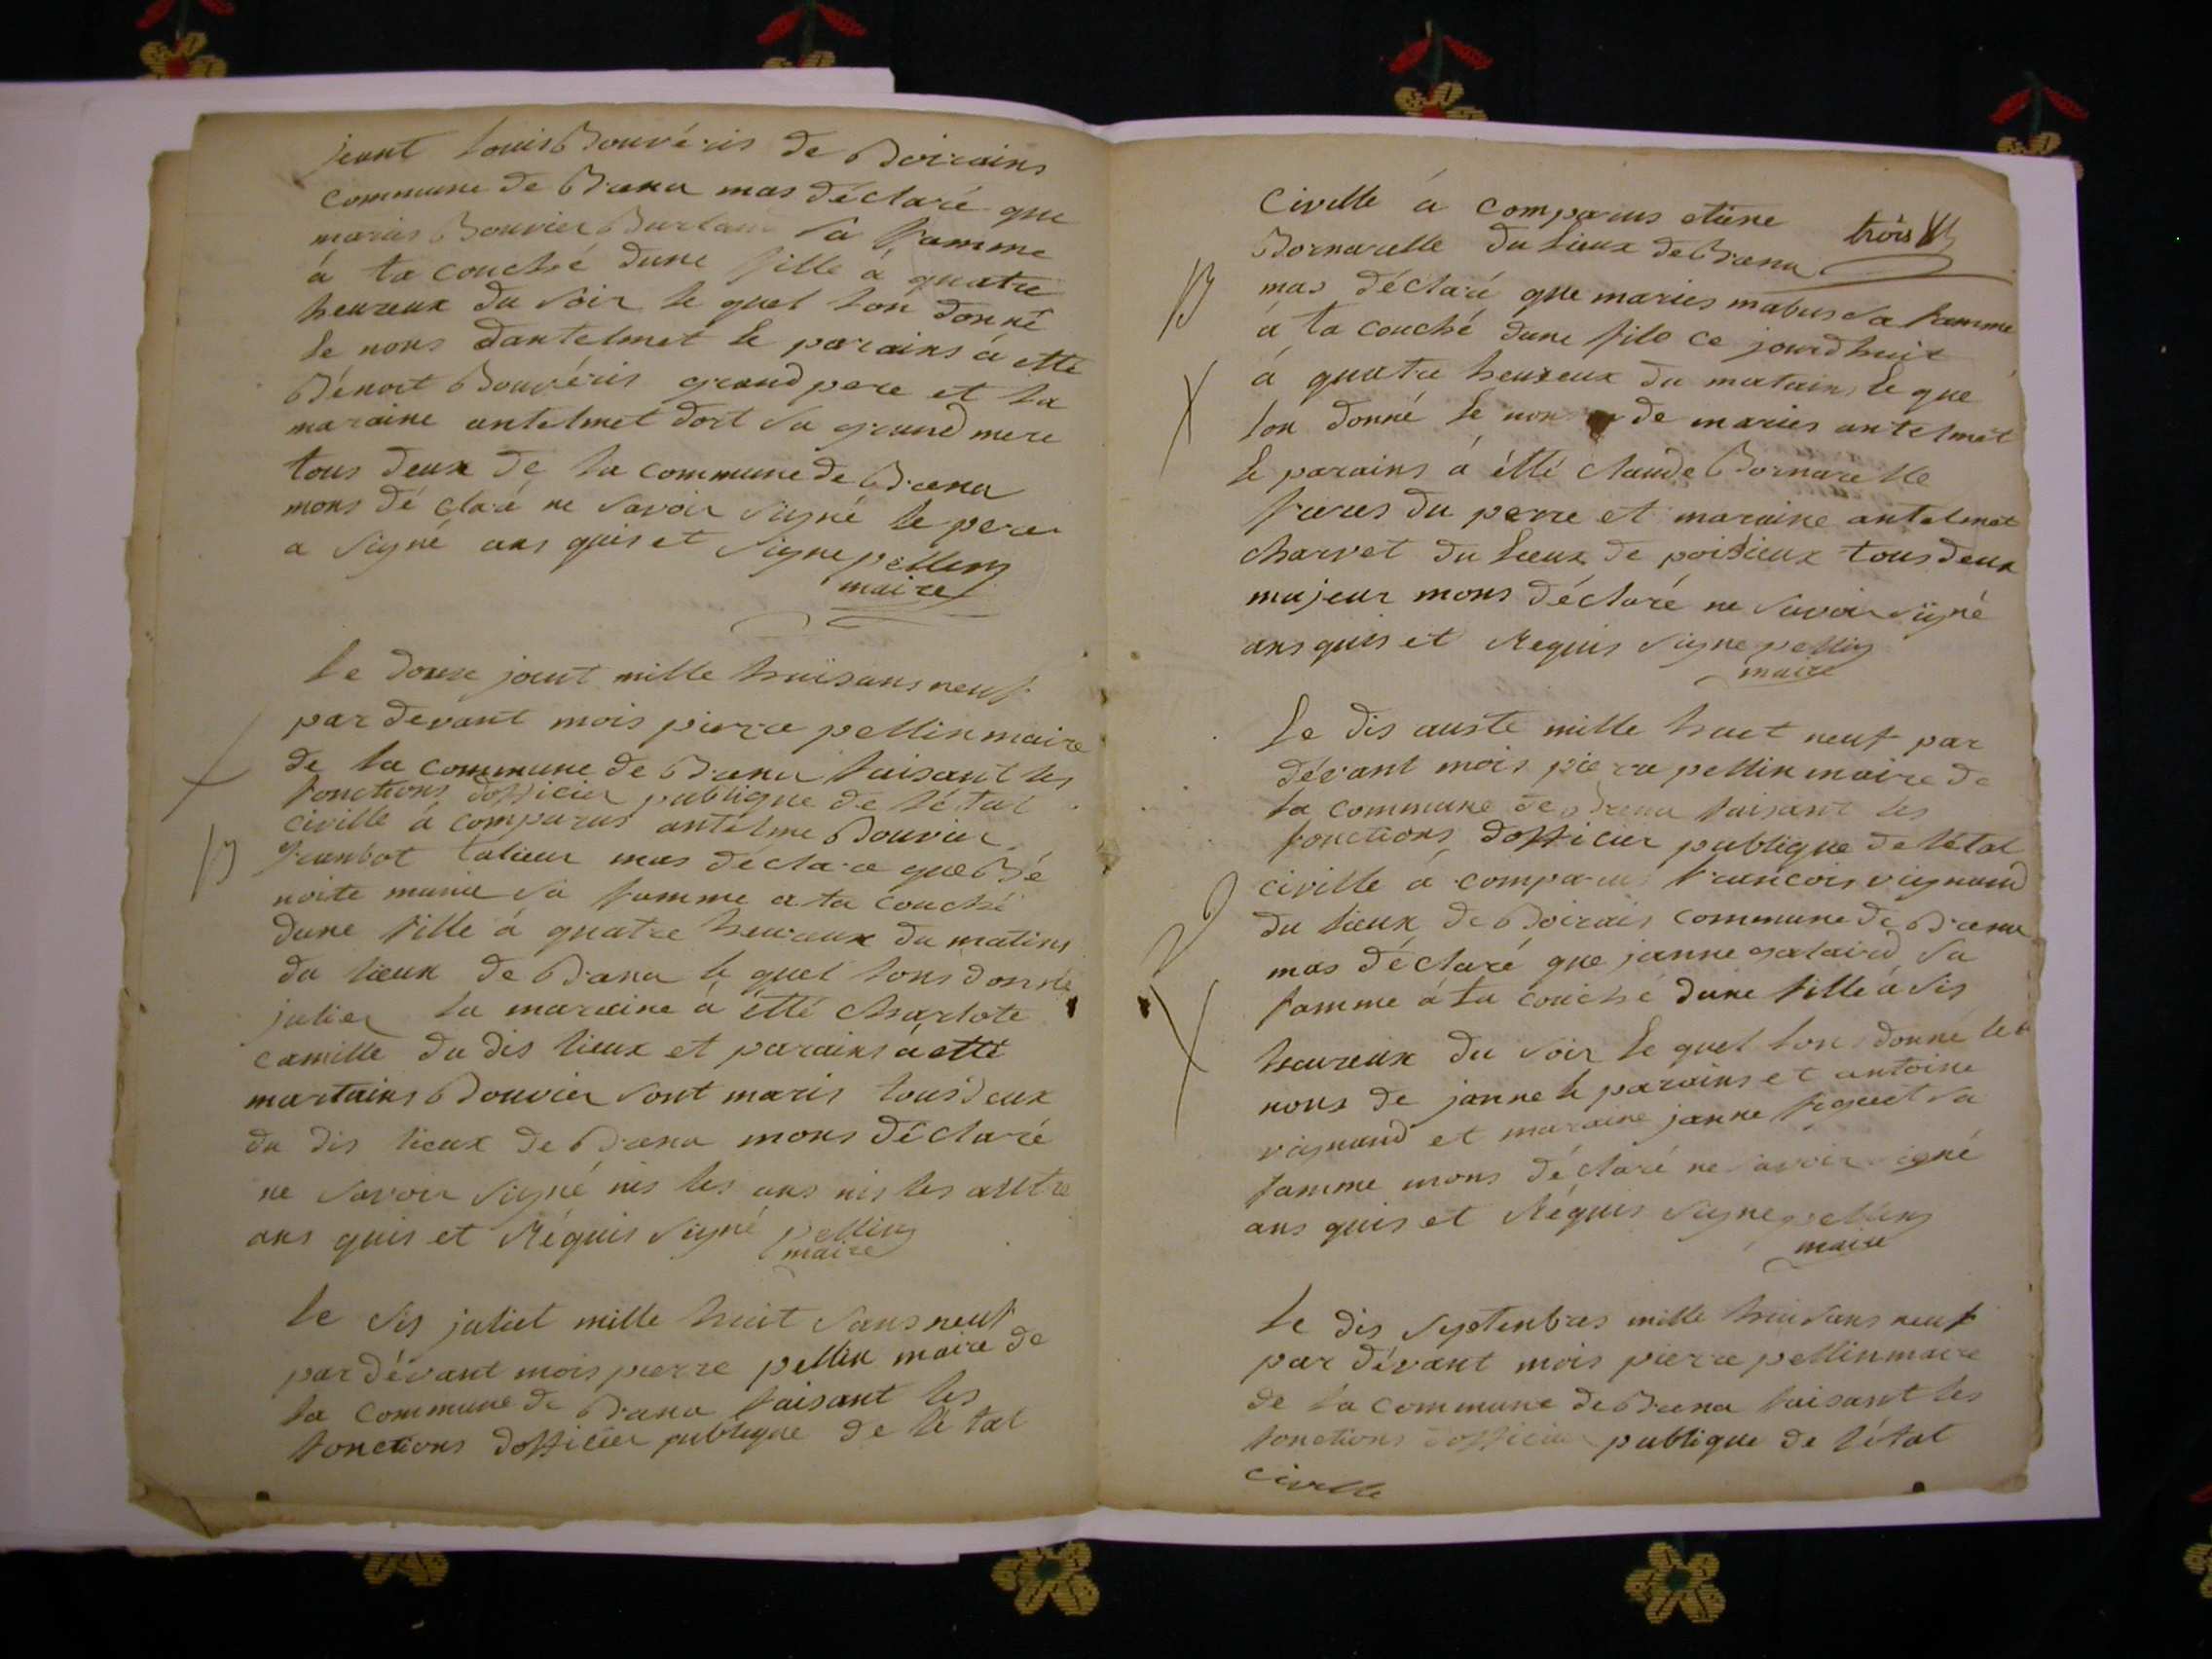 jeant Louis Bouvéris de Boirains
commune de Brena mas déclaré que
maries Bouvier Burlan sa famme
á ta couché dune fille á quatre
heureux du soir le quel lon donné
le nons dantelmet le parains á étté
Bénoit Bouvéris grand pere et la
maraine antelmet dort sa grand mere
tous deux de la commune de Brena
mons dé claré ne savoir signé le pere
a signé ans quis et signe pellin
maire
le douse jouit mille huisans neuf
par devant mois pierre pellin maire
de la commune de Brena faisant les
fonctions dofficier publique de létal
civille á comparus antelme Bouvier
jeanbot talieur mas déclare que Bé
noite marie sa famme a ta couché
dune fille á quatre heureux du matins
du lieux de Brena le quel lons donné
julier la maraine á étté charlote
camille du dis lieux et parains á etté
martains Bouvier sont maris tous deux
du dis lieux de Brena mons déclaré
ne savoir signé nis les uns nis les aultre
ans quis et Réquis signé pellin
maire
le sis juliet mille huit sans neuf
par dévant mois pierre pellin maire de
la commune de Brena faisant les
fonctions dofficier publique de le tal
trois
civille á comparus etiene
Bornarelle du lieux de Brena
mas déclaré que maries mabus sa famme
á ta couché dune file ce jourdhuit
á quatre heureux du matains le que
lon donné le non de maries antelmet
le parains á étté claude Bornarelle
freres du perre et maraine antelmet
charvet du lieux de poisieux tous deux
majeur mons déclaré ne savoir signé
ans quis et Requis signe pellin
maire
le dis auste mille huit neuf par
dévant mois pierre pellin maire de
la commune de Brena faisant les
fonctions dofficier publique de létal
civille á comparus francois vignaud
du lieux de Boirais commune de Brena
mas déclaré que janne galaird sa
famme á ta couché dune fille á sis
heureux du soir le quel lon donné le
nons de janne le parains et antoine
vignaud et maraine janne piquet sa
famme mons déclaré ne savoir signé
ans quis et Réquis signe pellin
maire
le dis septenbres mille huisans neuf
par dévant mois pierre pellin maire
de la commune de Brena faisant les
fonctions dofficier publique de létal
civille